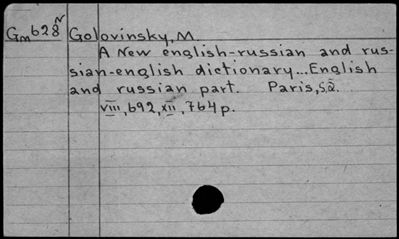 Gm628N Golovinsky, M.
A New english-russian and rus-
sian-english dictionary...English
and russian part. Paris, S.a.
VIII, 692, XII, 764 p.